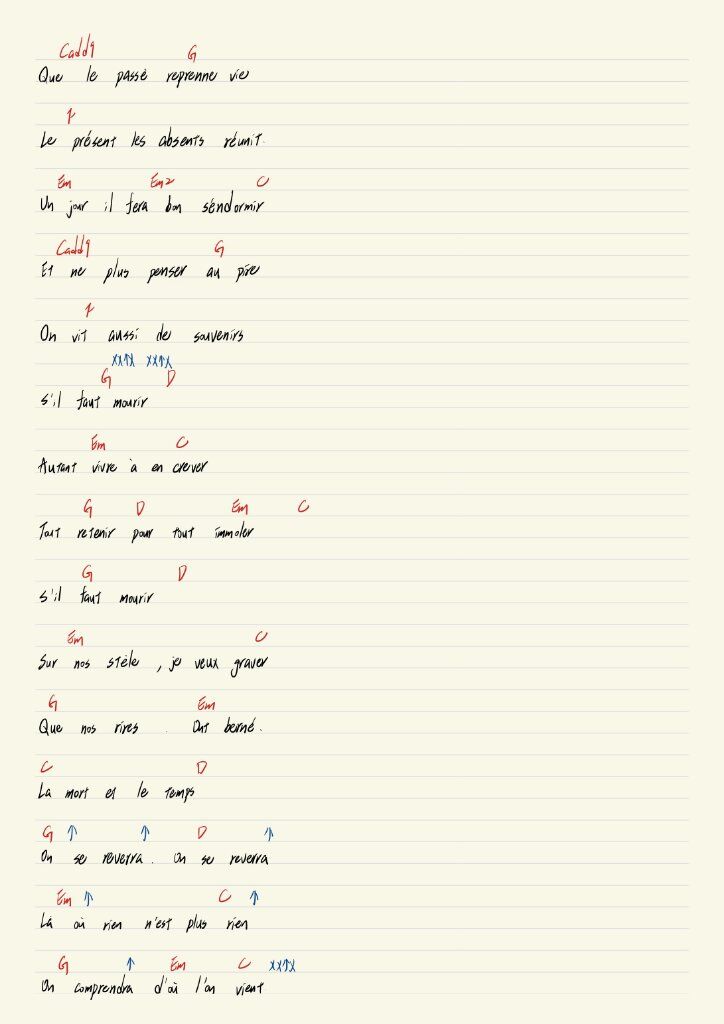 Cadd9 G
Que le passé reprenne vie
F
Le présent les absents réunit.
Em Em2 C
Un jour il fera bon séndormir
Cadd9 G
Et ne plus penser au pire
F
On vit aussi de souvenirs
xx↑x xx↑x
G D
s'il faut mourir
Em C
Autant vivre à en crever
G D Em C
Tout retenir pour tout immoler
G D
s'il faut mourir
Em C
Sur nos stèle, je veux graver
G Em
Que nos rires. Ont berné.
C D
La mort et le temps
G ↑ ↑ D ↑
On se reverra. On se reverra
Em ↑ C ↑
Là où rien n'est plus rien
G ↑ Em C xx↑x
On comprendra d'où l'on vient